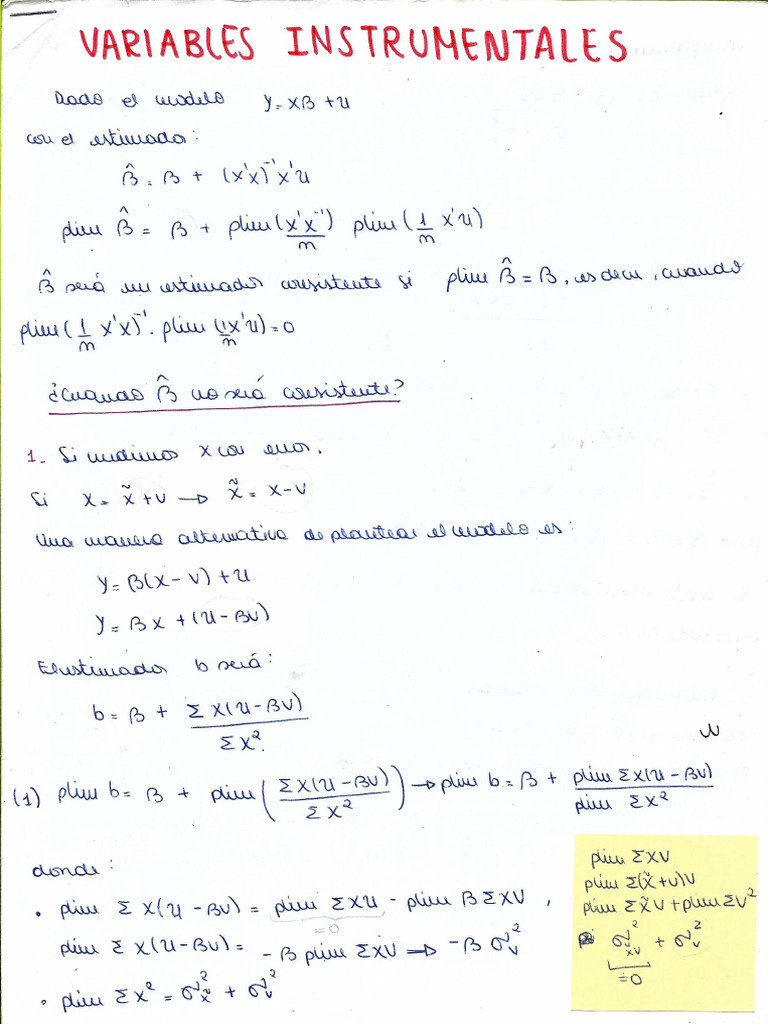 VARIABLES INSTRUMENTALES
Dado el modelo y = xβ + u
con el estimador:
β̂ = β + (x'x)⁻¹x'u
plim β̂ = β + plim(x'x⁻¹/n) plim(1/n x'u)
β̂ será un estimador consistente si plim β̂ = β, es decir, cuando
plim(1/n x'x)⁻¹. plim(1x'u/n) = 0
¿Cuando β̂ no será consistente?
1. Si medimos x con error.
Si x = x̃ + v → x̃ = x-v
Una manera alternativa de plantear el modelo es:
y = β(x - v) + u
y = βx + (u - βv)
El estimador b será:
b = β + Σx(u - βv)/Σx².
(1) plim b = β + plim(Σx(u - βv)/Σx²) → plim b = β + plim Σx(u - βv)/plim Σx²
donde:
• plim Σx(u - βv) = plim Σxu - plim βΣxv,
= 0
plim Σx(u - βv) = -β plim Σxv ⇒ -β σ²ᵥ
• plim Σx² = σ²x̃ + σ²ᵥ
plim Σxv
plim Σ(x̃ + v)v
plim Σx̃v + plim Σv²
σ²x̃v + σ²ᵥ
= 0